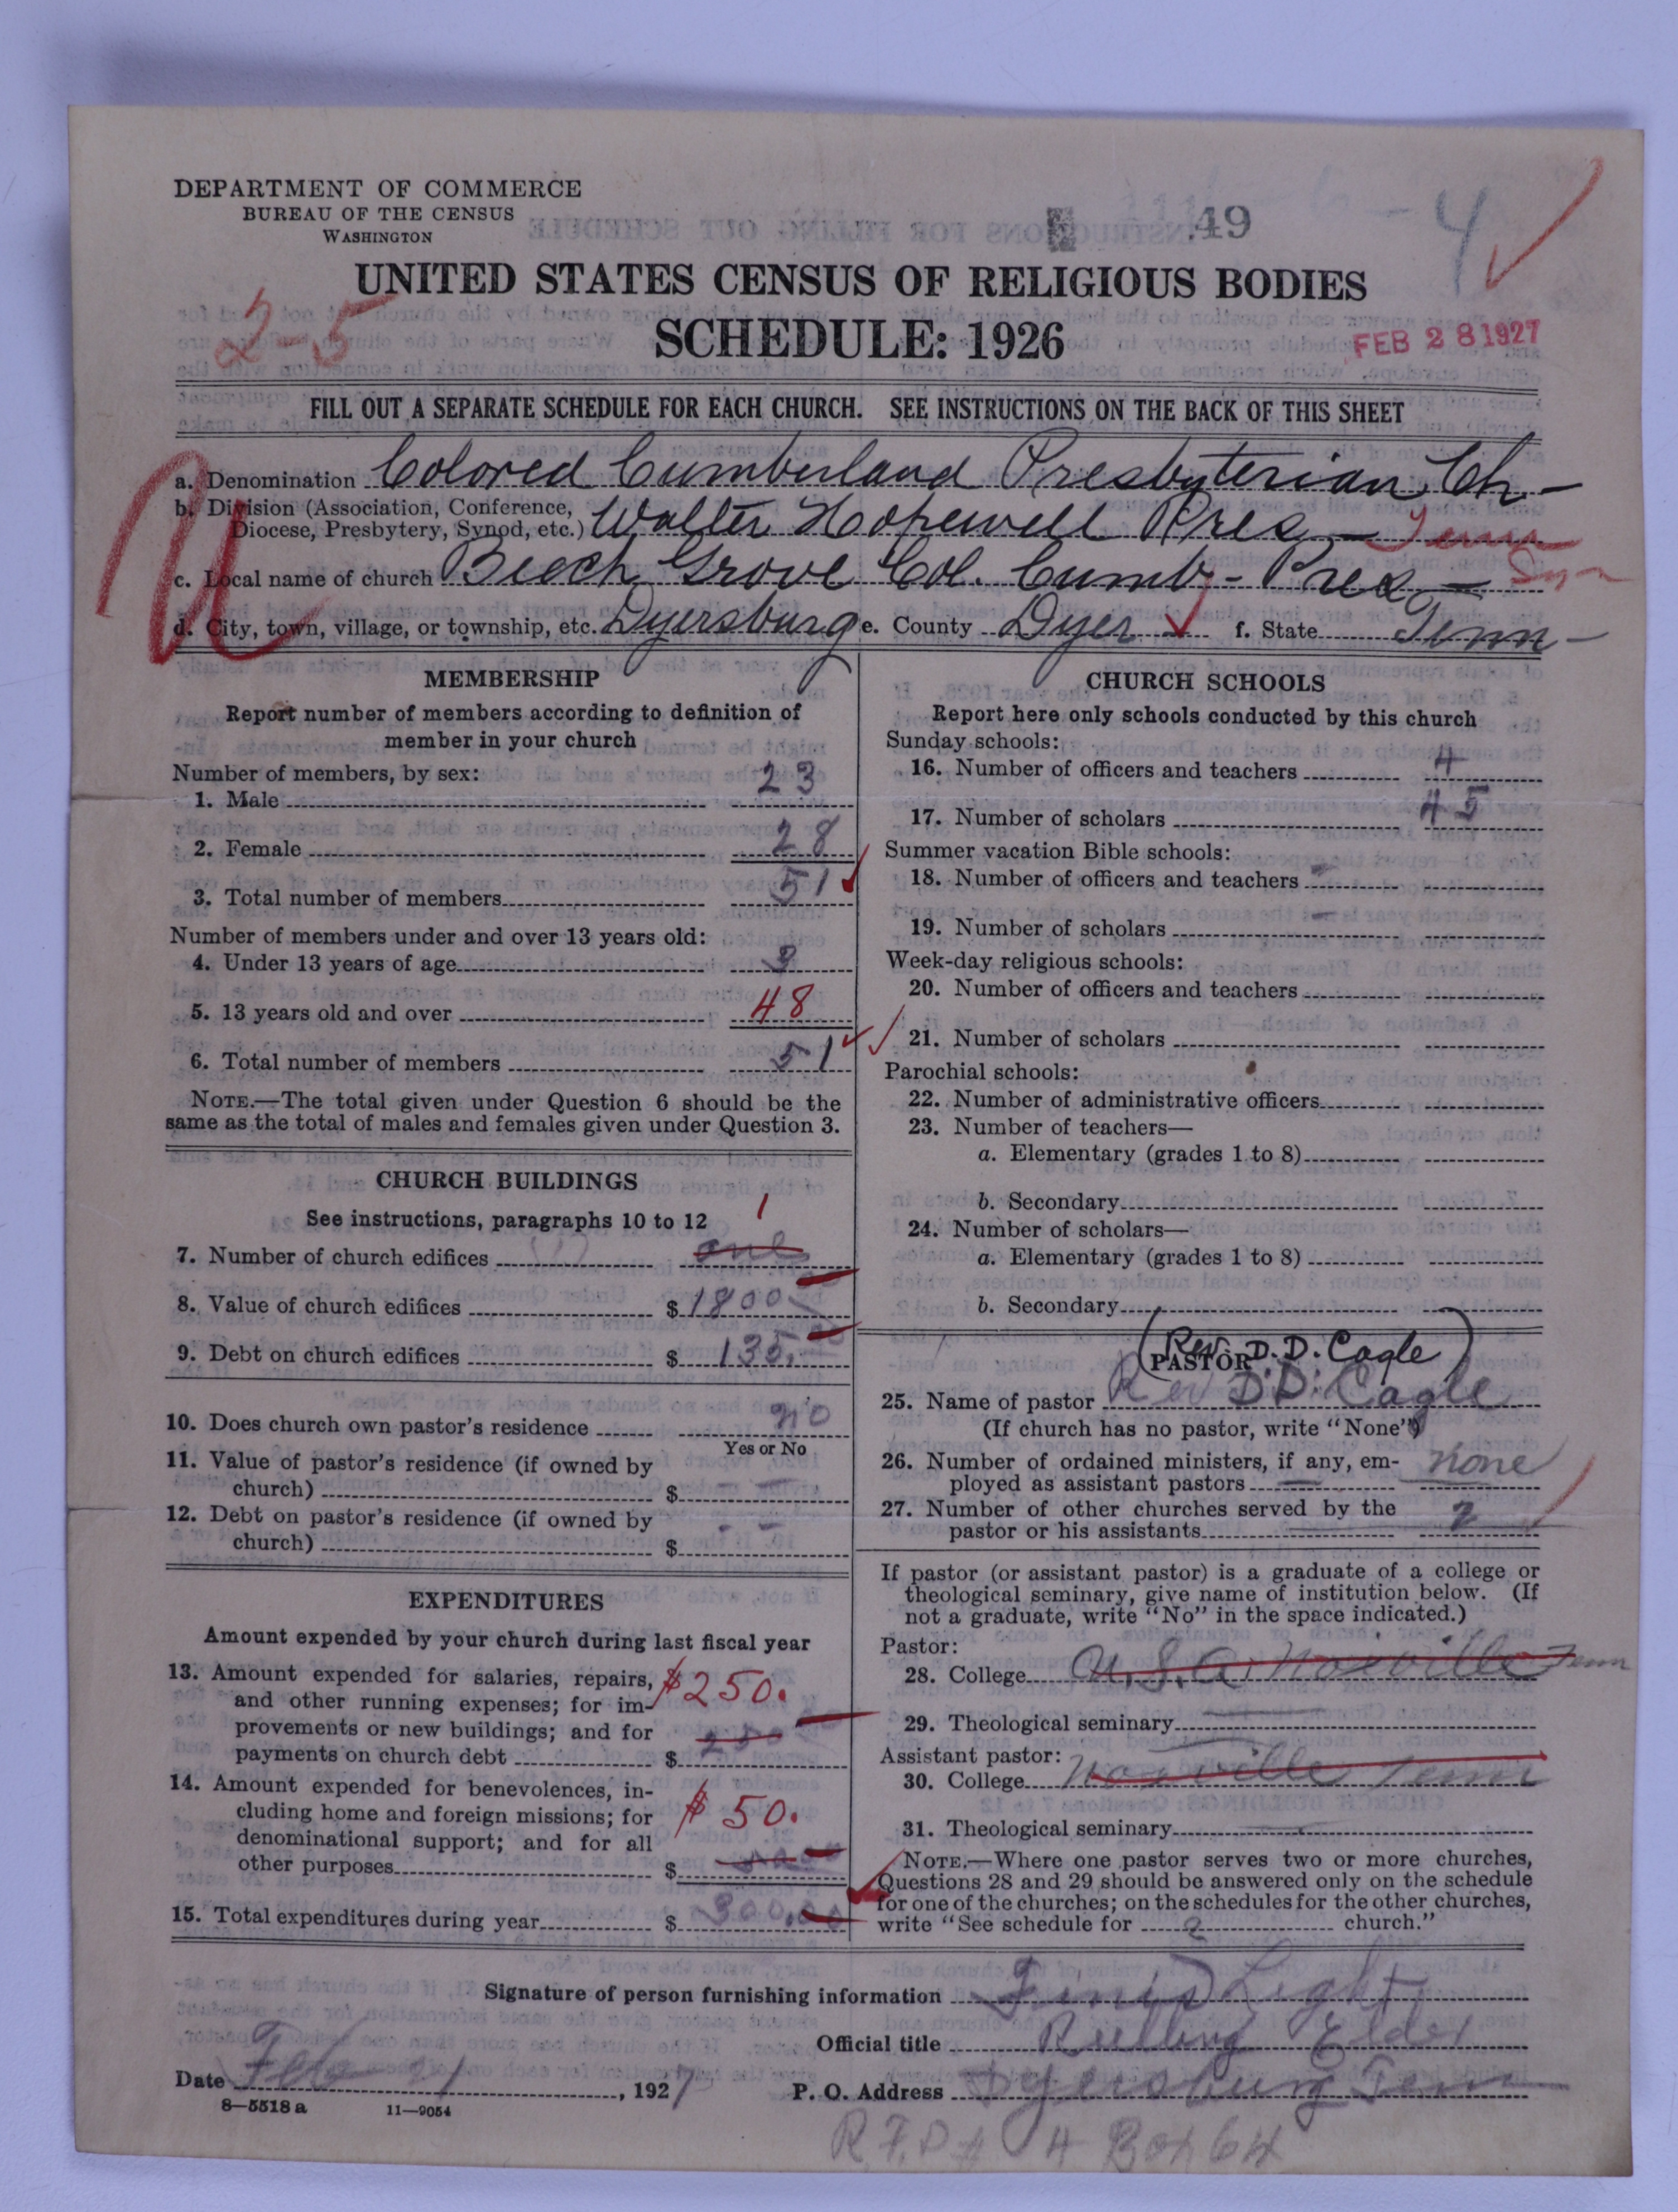 DEPARTMENT OF COMMERCE
BUREAU OF THE CENSUS
WASHINGTON
49
4
UNITED STATES CENSUS OF RELIGIOUS BODIES
2-5
SCHEDULE: 1926
FEB 28 1927
FILL OUT A SEPARATE SCHEDULE FOR EACH CHURCH. SEE INSTRUCTIONS ON THE BACK OF THIS SHEET
a. Denomination Colored Cumberland Presbyterian Ch-
b. Division (Association, Conference, Diocese, Presbytery, Synod, etc.) Walter Hopewell Pres - Tenn
c. Local name of church Beech Grove Col. Cumb- Pres - Syn
d. City, town, village, or township, etc. Dyersburg e. County Dyer f. State Tenn-
MEMBERSHIP
Report number of members according to definition of
member in your church
Number of members, by sex:
1. Male 23
2. Female 28
3. Total number of members 51
Number of members under and over 13 years old:
4. Under 13 years of age 3
5. 13 years old and over 48
6. Total number of members 51
NOTE.—The total given under Question 6 should be the
same as the total of males and females given under Question 3.
CHURCH BUILDINGS
See instructions, paragraphs 10 to 12
1
7. Number of church edifices one
8. Value of church edifices $ 1800
9. Debt on church edifices $ 135.
10. Does church own pastor's residence no
Yes or No
11. Value of pastor's residence (if owned by
church) $ -
12. Debt on pastor's residence (if owned by
church) $ - -
EXPENDITURES
Amount expended by your church during last fiscal year
13. Amount expended for salaries, repairs,
and other running expenses; for im-
provements or new buildings; and for
payments on church debt $ 250
$250.
14. Amount expended for benevolences, in-
cluding home and foreign missions; for
denominational support; and for all
other purposes $
$50.
15. Total expenditures during year $ 300.00
CHURCH SCHOOLS
Report here only schools conducted by this church
Sunday schools:
16. Number of officers and teachers 4
17. Number of scholars 45
Summer vacation Bible schools:
18. Number of officers and teachers -
19. Number of scholars -
Week-day religious schools:
20. Number of officers and teachers
21. Number of scholars
Parochial schools:
22. Number of administrative officers
23. Number of teachers—
a. Elementary (grades 1 to 8)
b. Secondary
24. Number of scholars—
a. Elementary (grades 1 to 8)
b. Secondary
(Rev. D. D. Cagle)
PASTOR
25. Name of pastor Rev D. D. Cagle
(If church has no pastor, write "None")
26. Number of ordained ministers, if any, em-
ployed as assistant pastors none
27. Number of other churches served by the
pastor or his assistants 2
If pastor (or assistant pastor) is a graduate of a college or
theological seminary, give name of institution below. (If
not a graduate, write "No" in the space indicated.)
Pastor:
28. College Tenn
29. Theological seminary
Assistant pastor:
30. College Tenn
31. Theological seminary
NOTE.—Where one pastor serves two or more churches,
Questions 28 and 29 should be answered only on the schedule
for one of the churches; on the schedules for the other churches,
write "See schedule for 2 church."
Signature of person furnishing information Finis Light
Official title Rulling Elder
Date Feb 21, 1927
P. O. Address Dyersburg Tenn
8—5518 a 11—9054
R.F.D # 4 Box 64